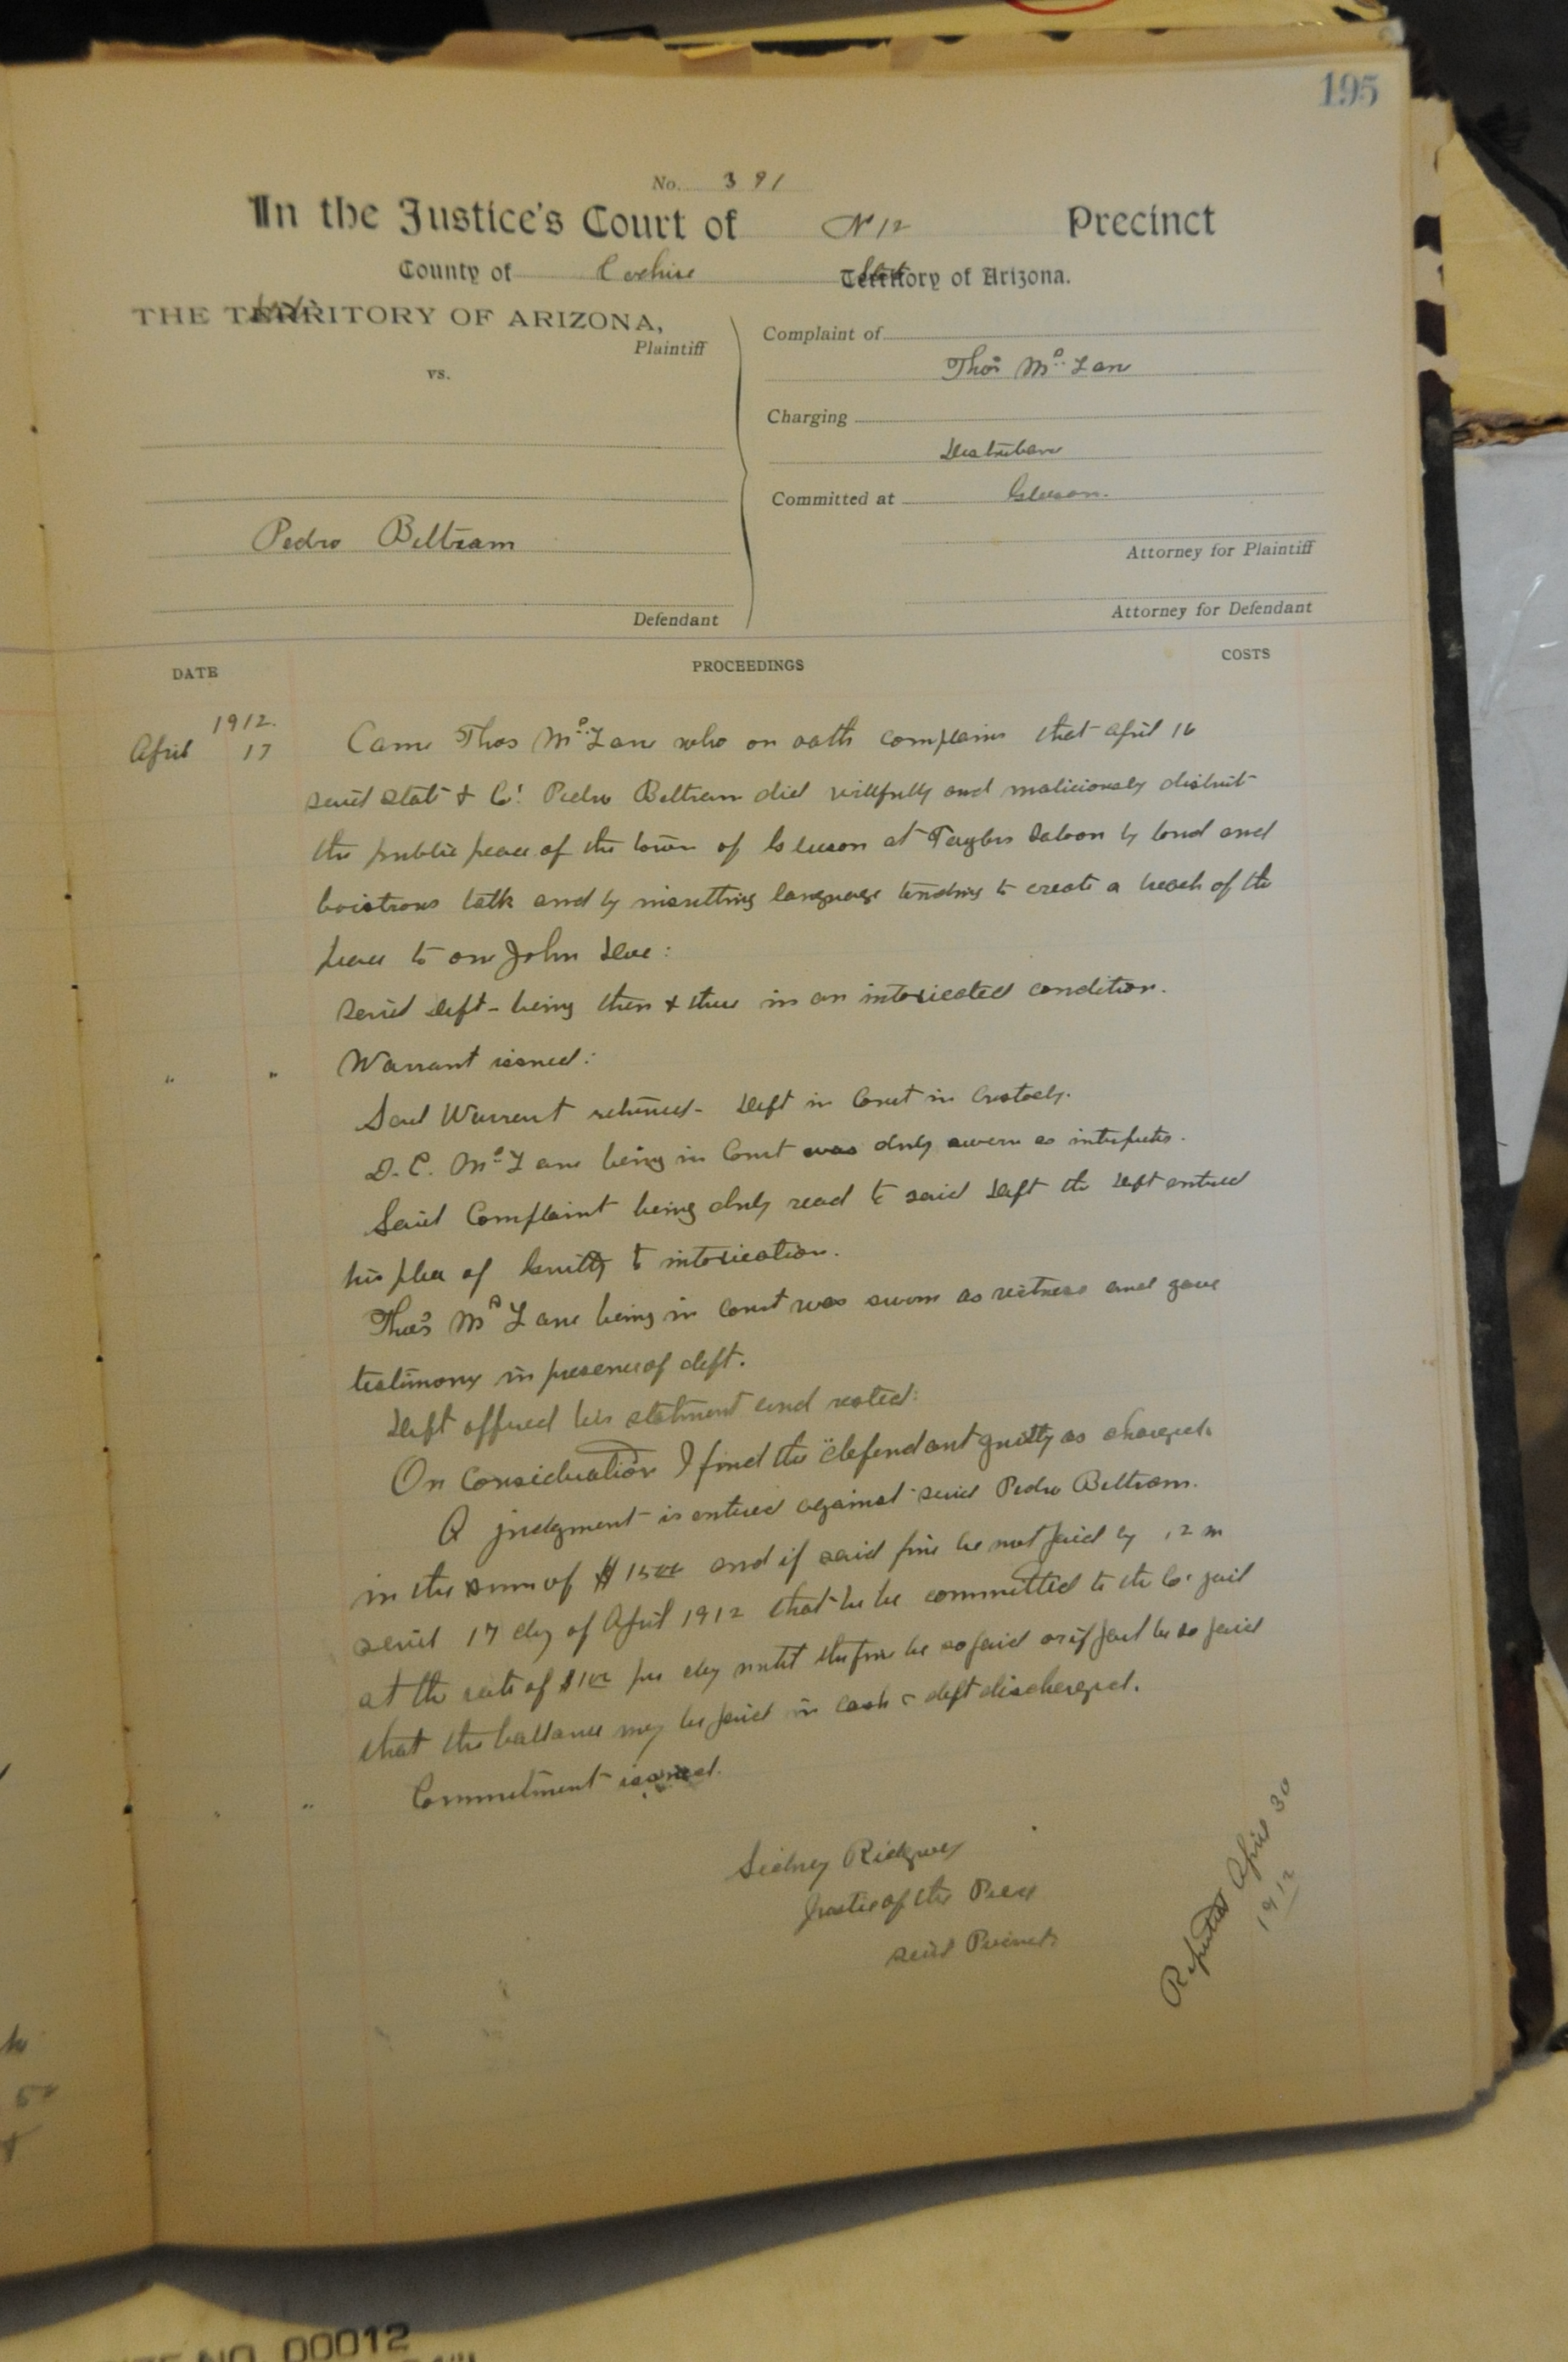 195
No. 391
In the Justice's Court of No 12 Precinct
County of Cochise State Territory of Arizona.
THE TERRITORY OF ARIZONA,
Plaintiff
vs.
Pedro Beltram
Defendant
Complaint of
Thos McLane
Charging
Disturbance
Committed at Gleeson.
Attorney for Plaintiff
Attorney for Defendant
DATE PROCEEDINGS COSTS
1912.
April 17 Came Thos McLane who on oath complains that April 16
said State & Co. Pedro Beltram did willfully and maliciously disturb
the public peace of the town of Gleeson at Taylors Saloon by loud and
boistrous talk and by insulting language tending to create a breach of the
peace to one John Doe:
Said Deft - being then & there in an intoxicated condition.
" " Warrant issued:
Said Warrant returned - Deft in Court in Custody.
D. C. McLane being in Court was duly sworn as interpreter.
Said Complaint being duly read to said Deft the Deft entered
his plea of Guilty to intoxication.
Thos McLane being in Court was sworn as witness and gave
testimony in presence of deft.
Deft offered his statment and rested:
On Consideration I find the defendant guilty as charged.
A judgment is entered against said Pedro Beltram.
in the sum of $15 00 and if said fine be not paid by 12 m
said 17 day of April 1912 that he be committed to the Co. jail
at the rate of $1 00 per day until the fine be so paid or if part be so paid
that the ballance may be paid in cash & deft discharged.
" " Commitment issued.
Sidney Ridgway
Justice of the Peace
said Precinct
Reported April 30
1912
NO. 00012